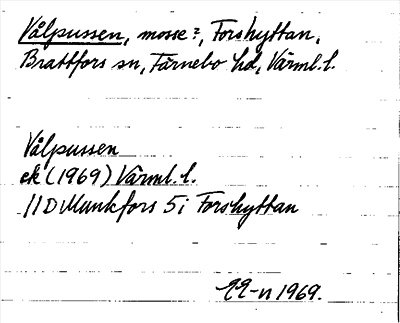 Vålpussen, mosse?, Forshyttan,
Brattfors sn, Färnebo hd, Värml. l.
Vålpussen
ek (1969) Värml. l.
11D Munkfors 5i Forshyttan
1969.